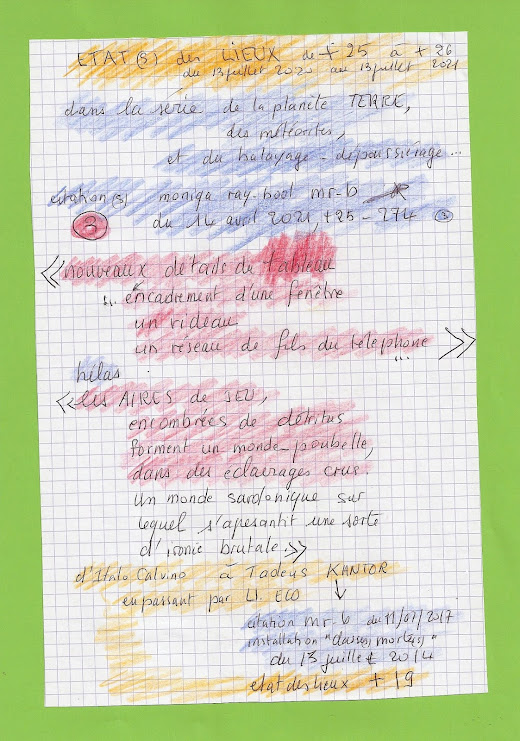 ETAT(S) des LIEUX de + 25 à + 26
du 13 juillet 2020 au 13 juillet 2021
dans la série de la planète TERRE,
des météorites,
et du balayage - dépoussiérage...
citation(s) moniqa ray-bool mr-b
du 14 avril 2021, +25 - 274 ③
nouveaux détails du tableau
... encadrement d'une fenêtre
un rideau
un réseau de fils du téléphone
...
hélas
<< les AIRES de JEU,
encombrées de détritus
forment un monde-poubelle,
dans des éclairages crus.
Un monde sardonique sur
lequel s'apesantit une sorte
d'ironie brutale. >>
d'Italo Calvino à Tadeus KANTOR
en passant par U. ECO
citation mr-b du 11/07/2017
installation "classes morte(s)"
du 13 juillet 2014
etat des lieux + 19